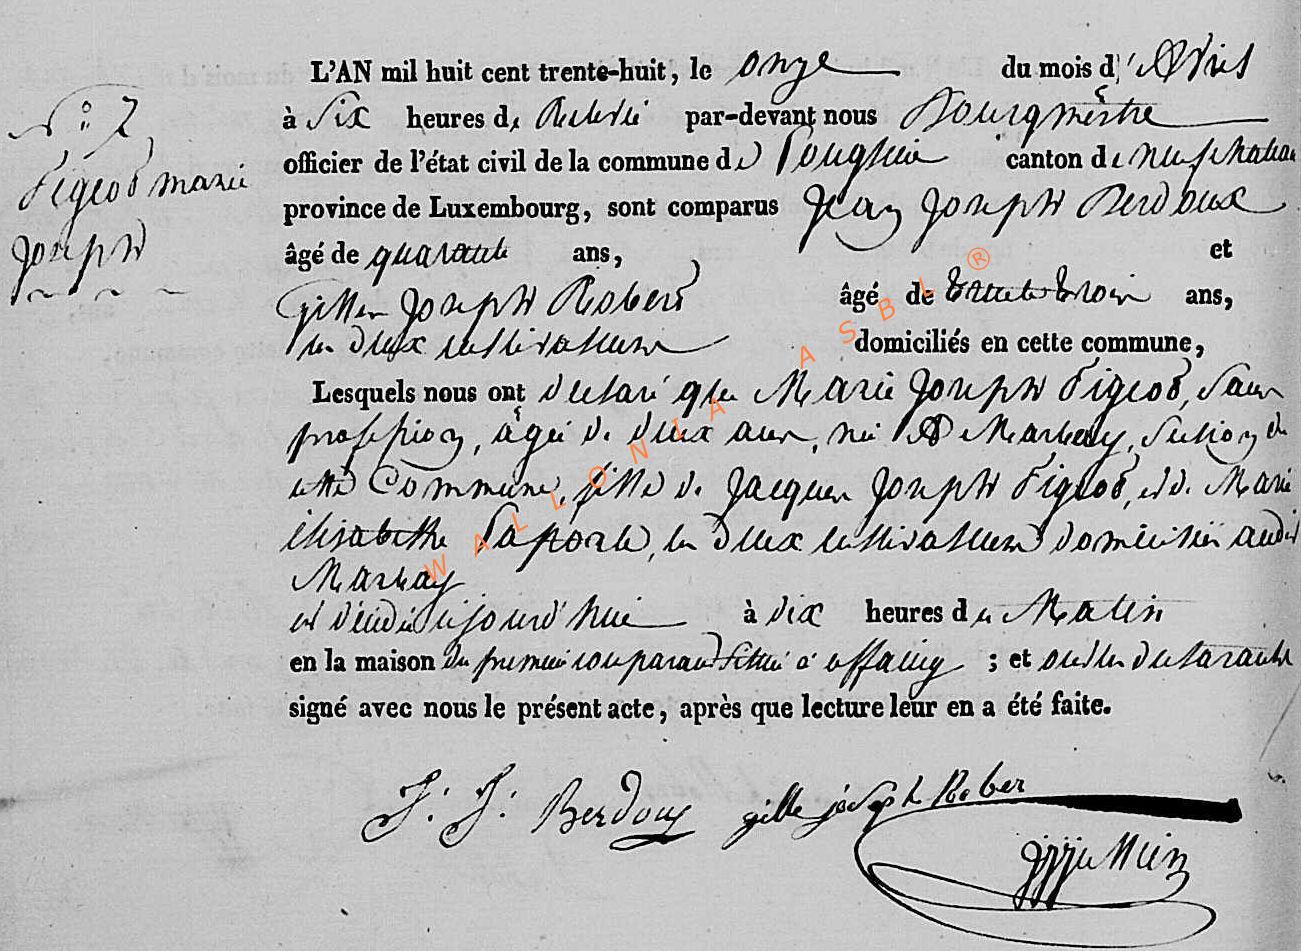 L'AN mil huit cent trente-huit, le onze du mois d'Avril
à Six heures de Relevée par-devant nous Bourgmestre
officier de l'état civil de la commune de canton de neufchateau
province de Luxembourg, sont comparus Jean Joseph Berdoux
âgé de quarante ans, et
Gilles Joseph Robert âgé de trente trois ans,
les deux cultivateurs domiciliés en cette commune,
Lesquels nous ont declaré que Marie Joseph Pigeot, sans
profession, âgée de deux ans, née à Marbay, section de
cette Commune, fille de Jacques Joseph Pigeot, et de Marie
élisabethe Laporte, les deux cultivateurs domiciliés audit
Marbay
est décédée aujourd'hui à dix heures du Matin
en la maison du premier comparant située à offaing ; et ont les declarants
signé avec nous le présent acte, après que lecture leur en a été faite.
N° 7
Pigeot marie
Joseph
J: J: Berdoux gille joseph Rober
WALLONIA ASBL ®